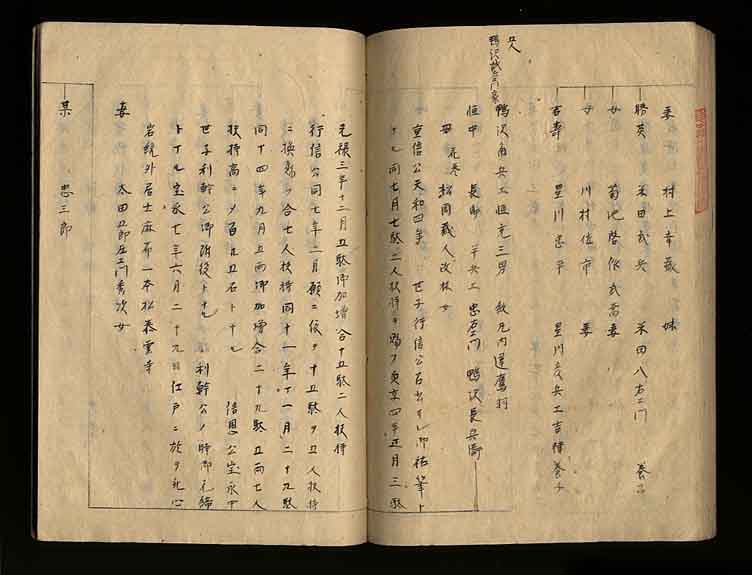 妻 村上幸蔵 妹
勝英 米田武兵 米田八右エ門 養子
女 菊池啓作武喬妻
女 川村佳市 妻
百寿 星川忠平 星川 兵エ吉 養子
又 鴨沢 エ門家
鴨沢角兵エ恒充三男 数 内蓬鷹羽
恒中 長助 半兵エ 忠左エ門 鴨沢長兵衛
母 花巻 松岡蔵人改林女
重信公天和四年 世子行信公召出サレ御祐筆ト
ナル同七月七駄二人扶持ヲ賜フ貞享四年正月三駄
元禄三年十二月五駄御加増合十五駄二人扶持
行信公同七年二月願ニ依テ十五駄ヲ五人扶持
ニ換ヘラル合七人扶持同十一年十一月二十九駄
同十四年九月五両御加増合二十九駄五両七人
扶持高ニメ百九五石トナル 信恩公宝永中
世子利幹公御附役トナル 利幹公ノ時御元締
トナル宝永七年六月二十九日江戸ニ於テ死心
岩統外居士麻布一本松泰雲寺
妻 太田九郎左エ門秀次女
某 忠三郎